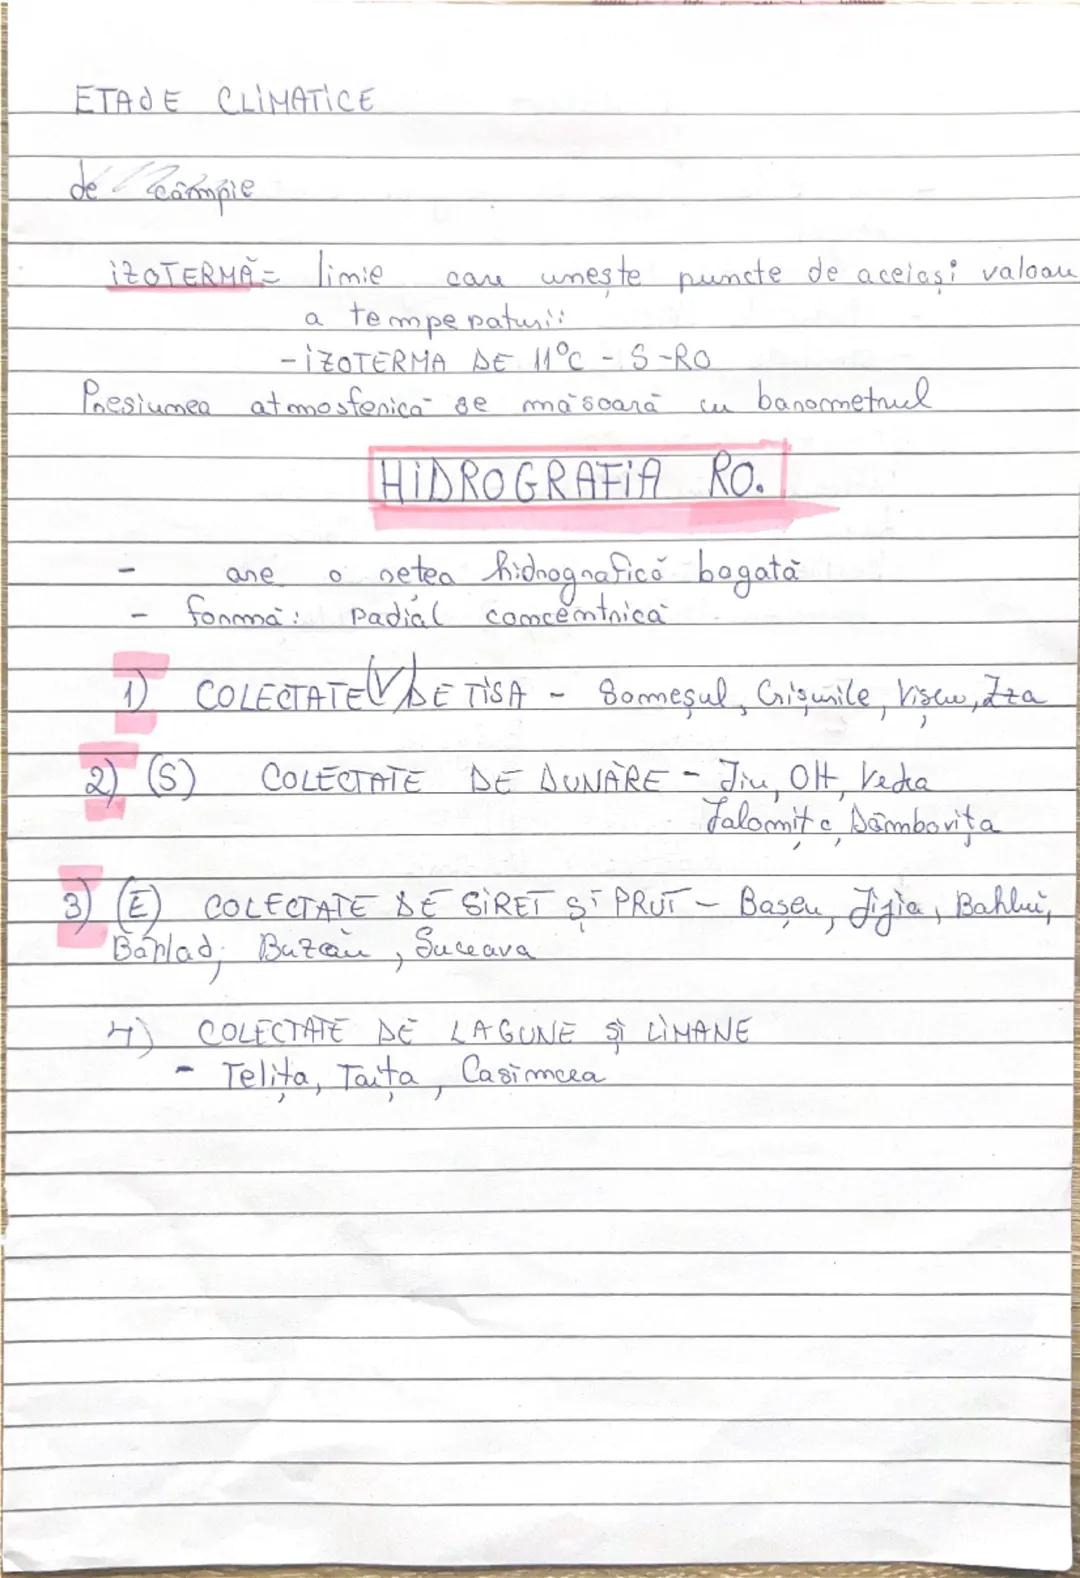 ETAJE CLIMATICE
de câmpie
IZOTERMĂ = linie care unește puncte de aceiași valoare
a temperaturii
- IZOTERMA DE 11°C - S-RO
Presiunea atmosferică se măsoară cu barometrul
HIDROGRAFIA RO.
- are o rețea hidrografică bogată
- formă: radial concentrică
1) COLECTATE (V) DE TISA - Someșul, Crișurile, Vișeu, Iza
2) (S) COLECTATE DE DUNĂRE - Jiu, Olt, Vedea
Ialomița, Dâmbovița
3) (E) COLECTATE DE SIRET ȘI PRUT - Bașeu, Jijia, Bahlui,
Bârlad, Buzău, Suceava
4) COLECTATE DE LAGUNE ȘI LIMANE
- Telița, Taița, Casimcea